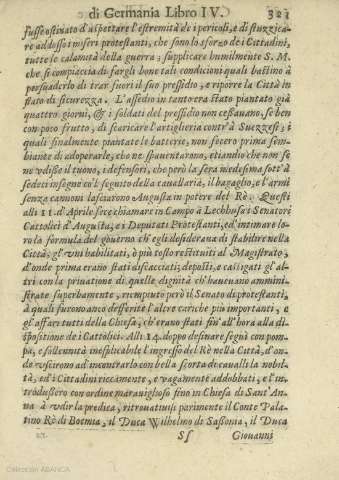 di Germania Libro IV. 321
fusse ostinato d'aspettare l'estremità de i pericoli, e di stuzzica-
re addosso i miseri protestanti, che sono lo sforzo de i Cittadini,
tutte le calamità della guerra; supplicare humilmente S. M.
che si compiaccia di fargli bone tali condicioni quali bastino à
persuaderlo di trar fuori il suo pressidio, e riporre la Città in
stato di sicurezza. L'assedio in tanto era stato piantato già
quattro giorni, & i soldati del pressidio non cessauano, se ben
con poco frutto, di scaricare l'artiglieria contr'à Suezzesi; i
quali finalmente piantate le batterie, non fecero prima sem-
biante di adoperarle, che ne spauentarono, etiandio che non se
ne vdisse il tuono, i defensori, che però la sera medesima sott'à
sedeci insegne co'l seguito della cauallaria, il bagaglio, e l'armi
senza cannoni lasciarono Augusta in potere del Rè. Questi
alli 11. d'Aprile fece chiamare in Campo à Lechhusa i Senatori
Cattolici d'Augusta, e i Deputati Protestanti, ed'intimare lo-
ro la formula del gouerno ch'egli desideraua di stabilire nella
Città; gl'vni habilitati, ò più tosto restituiti al Magistrato,
d'onde prima erano stati discacciati; deposti, e castigati gl'al-
tri con la priuatione di quelle dignità ch'haueuano ammini-
strate superbamente, riempiuto però il Senato di protestanti,
à quali furono anco desserite l'altre cariche più importanti, e
gl'affari tutti della Chiesa, ch'erano stati fin'all'hora alla di-
spositione de i Cattolici. Alli 14. doppo desinare seguì con pom-
pa, e sollennità inesplicabile l'ingresso del Rè nella Città, d'on-
de vscirono ad incontrarlo con bella scorta de caualli la nobil-
tà, ed i Cittadini riccamente, e vagamente addobbati, e l'in-
trodussero con ordine marauiglioso fino in Chiesa di Sant'An-
na à vdir la predica, ritrouatuisi parimente il Conte Pala-
tino Rè di Boemia, il Duca Wilhelmo di Sassonia, il Duca
Sf Giouanni
Colección ABANCA